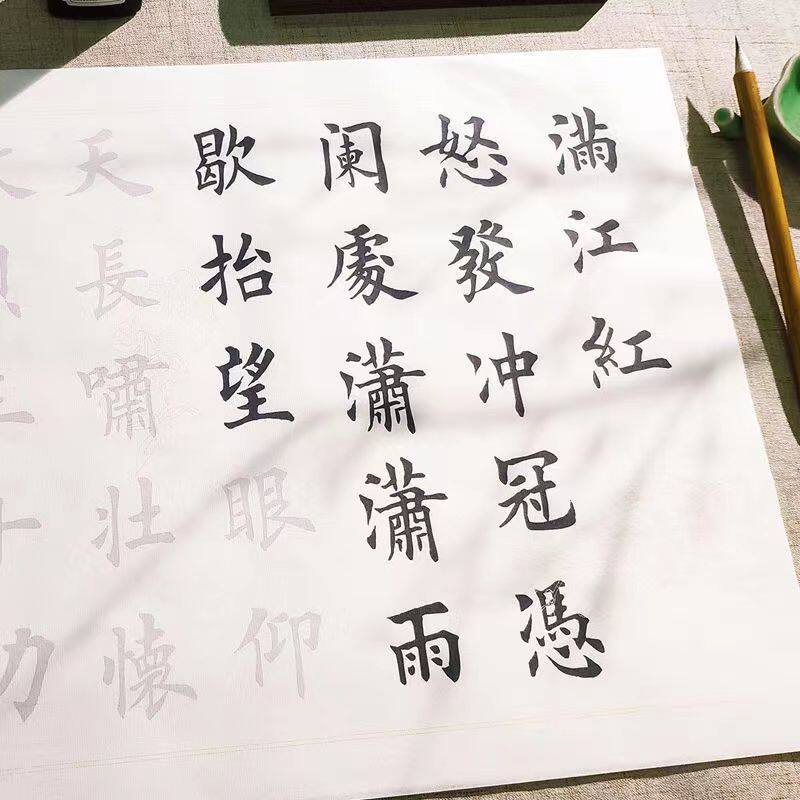 滿江紅
怒發冲冠憑
阑處瀟瀟雨
歇抬望眼仰
天長嘯壯懷